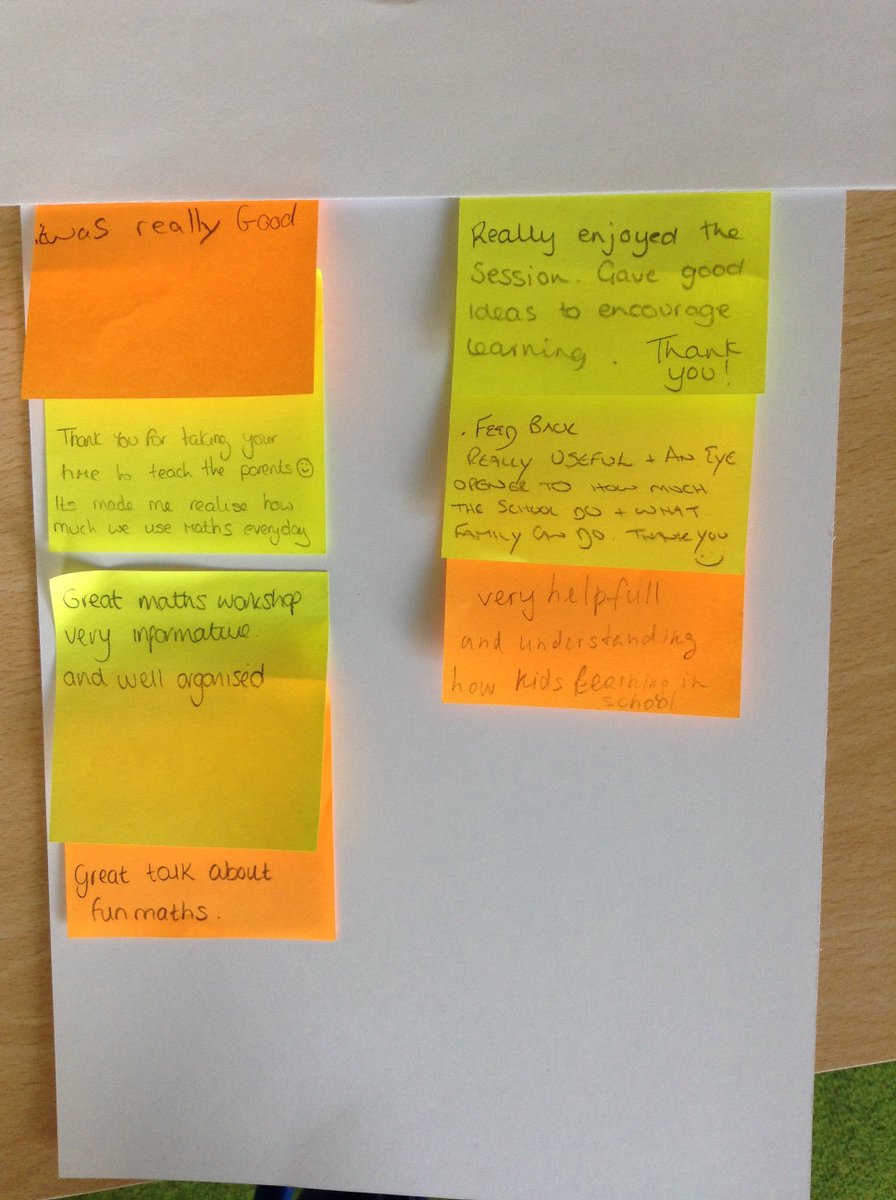 it was really Good
Thank You for taking your
time to teach the parents☺
Its made me realise how
much we use Maths everyday
Great maths workshop
very informative.
and well organised
Great talk about
fun maths.
Really enjoyed the
Session. Gave good
ideas to encourage
learning. Thank
you!
. FEED BACK
REALLY USEFUL + AN EYE
OPENER TO HOW MUCH
THE SCHOOL DO + WHAT
FAMILY CAN DO. THANK YOU
very helpfull
and understanding
how kids learning in
school